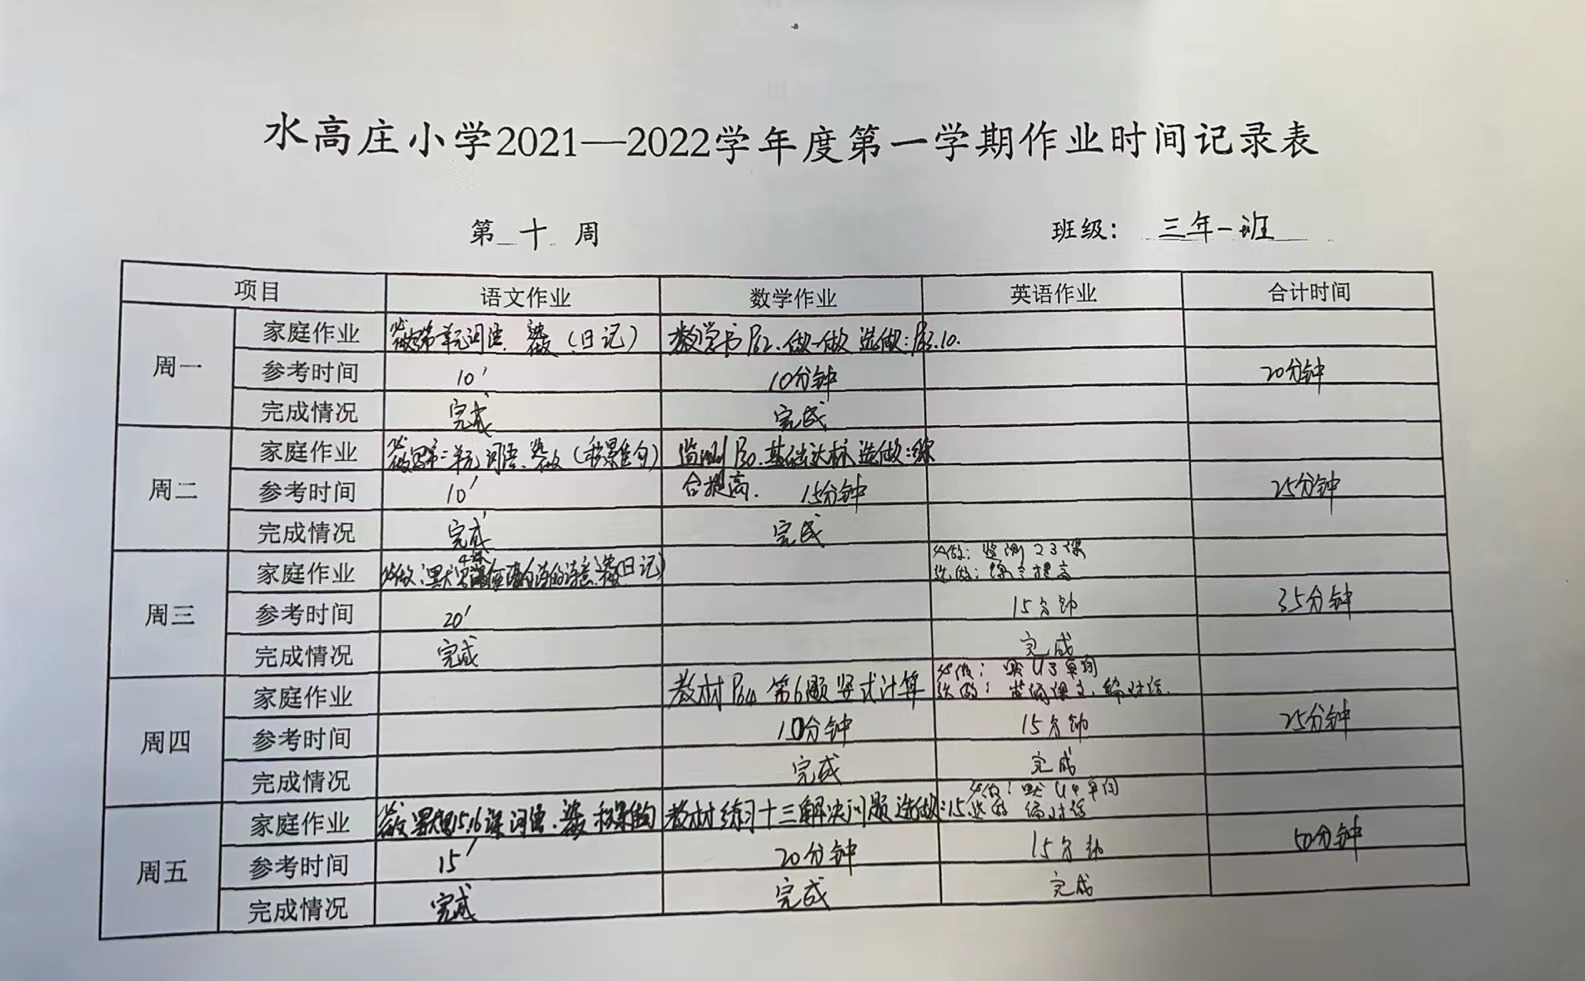 水高庄小学2021—2022学年度第一学期作业时间记录表
第 十 周 班级： 三年一班
项目 语文作业 数学作业 英语作业 合计时间
周一
家庭作业 单元词语 （日记） 数学书P62.做一做 选做：10.
参考时间 10′ 10分钟 20分钟
完成情况 完成 完成
周二
家庭作业 单元词语 （积累佳句） 监测P30.基础达标 选做：综
合提高.
参考时间 10′ 15分钟 25分钟
完成情况 完成 完成
周三
家庭作业 必做：默写 的诗意 日记） 必做：监测23课
选做：综合提高
参考时间 20′ 15分钟 35分钟
完成情况 完成 完成
周四
家庭作业 教材P64 第6题 竖式计算 必做：默U3单词
选做： 课文，编对话.
参考时间 10分钟 15分钟 25分钟
完成情况 完成 完成
周五
家庭作业 默写15,16课词语. 积累佳句 教材练习十三解决问题 选做：15. 必做：默U4单词
选做 编对话
参考时间 15′ 20分钟 15分钟 50分钟
完成情况 完成 完成 完成